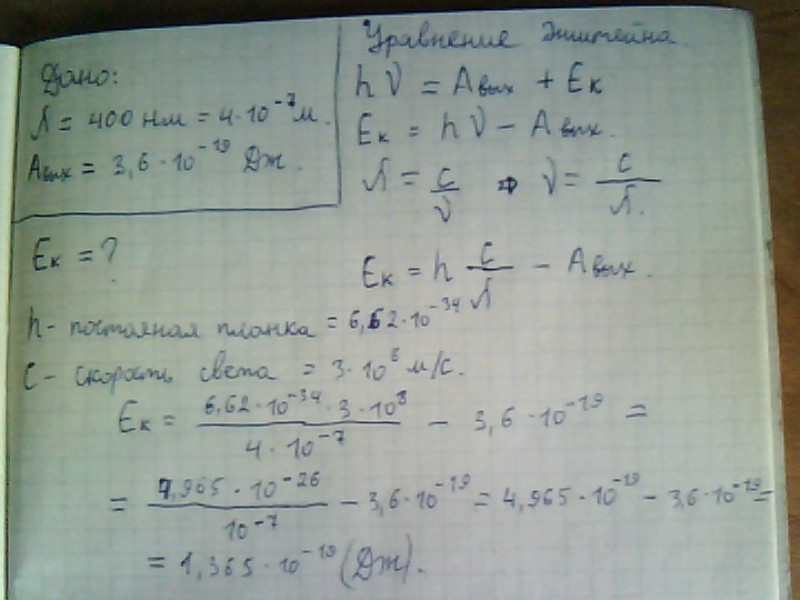 Дано:
λ = 400 нм = 4·10⁻⁷ м.
Aвых = 3,6·10⁻¹⁹ Дж.
Eк = ?
Уравнение Энштейна.
hν = Aвых + Eк
Eк = hν − Aвых.
λ = c/ν ⇒ ν = c/λ.
Eк = h c/λ − Aвых.
h - постояная планка = 6,62·10⁻³⁴
С - скорость света = 3·10⁸ м/с.
Eк = (6,62·10⁻³⁴·3·10⁸)/(4·10⁻⁷) − 3,6·10⁻¹⁹ =
= (4,965·10⁻²⁶)/(10⁻⁷) − 3,6·10⁻¹⁹ = 4,965·10⁻¹⁹ − 3,6·10⁻¹⁹ =
= 1,365·10⁻¹⁹ (Дж).